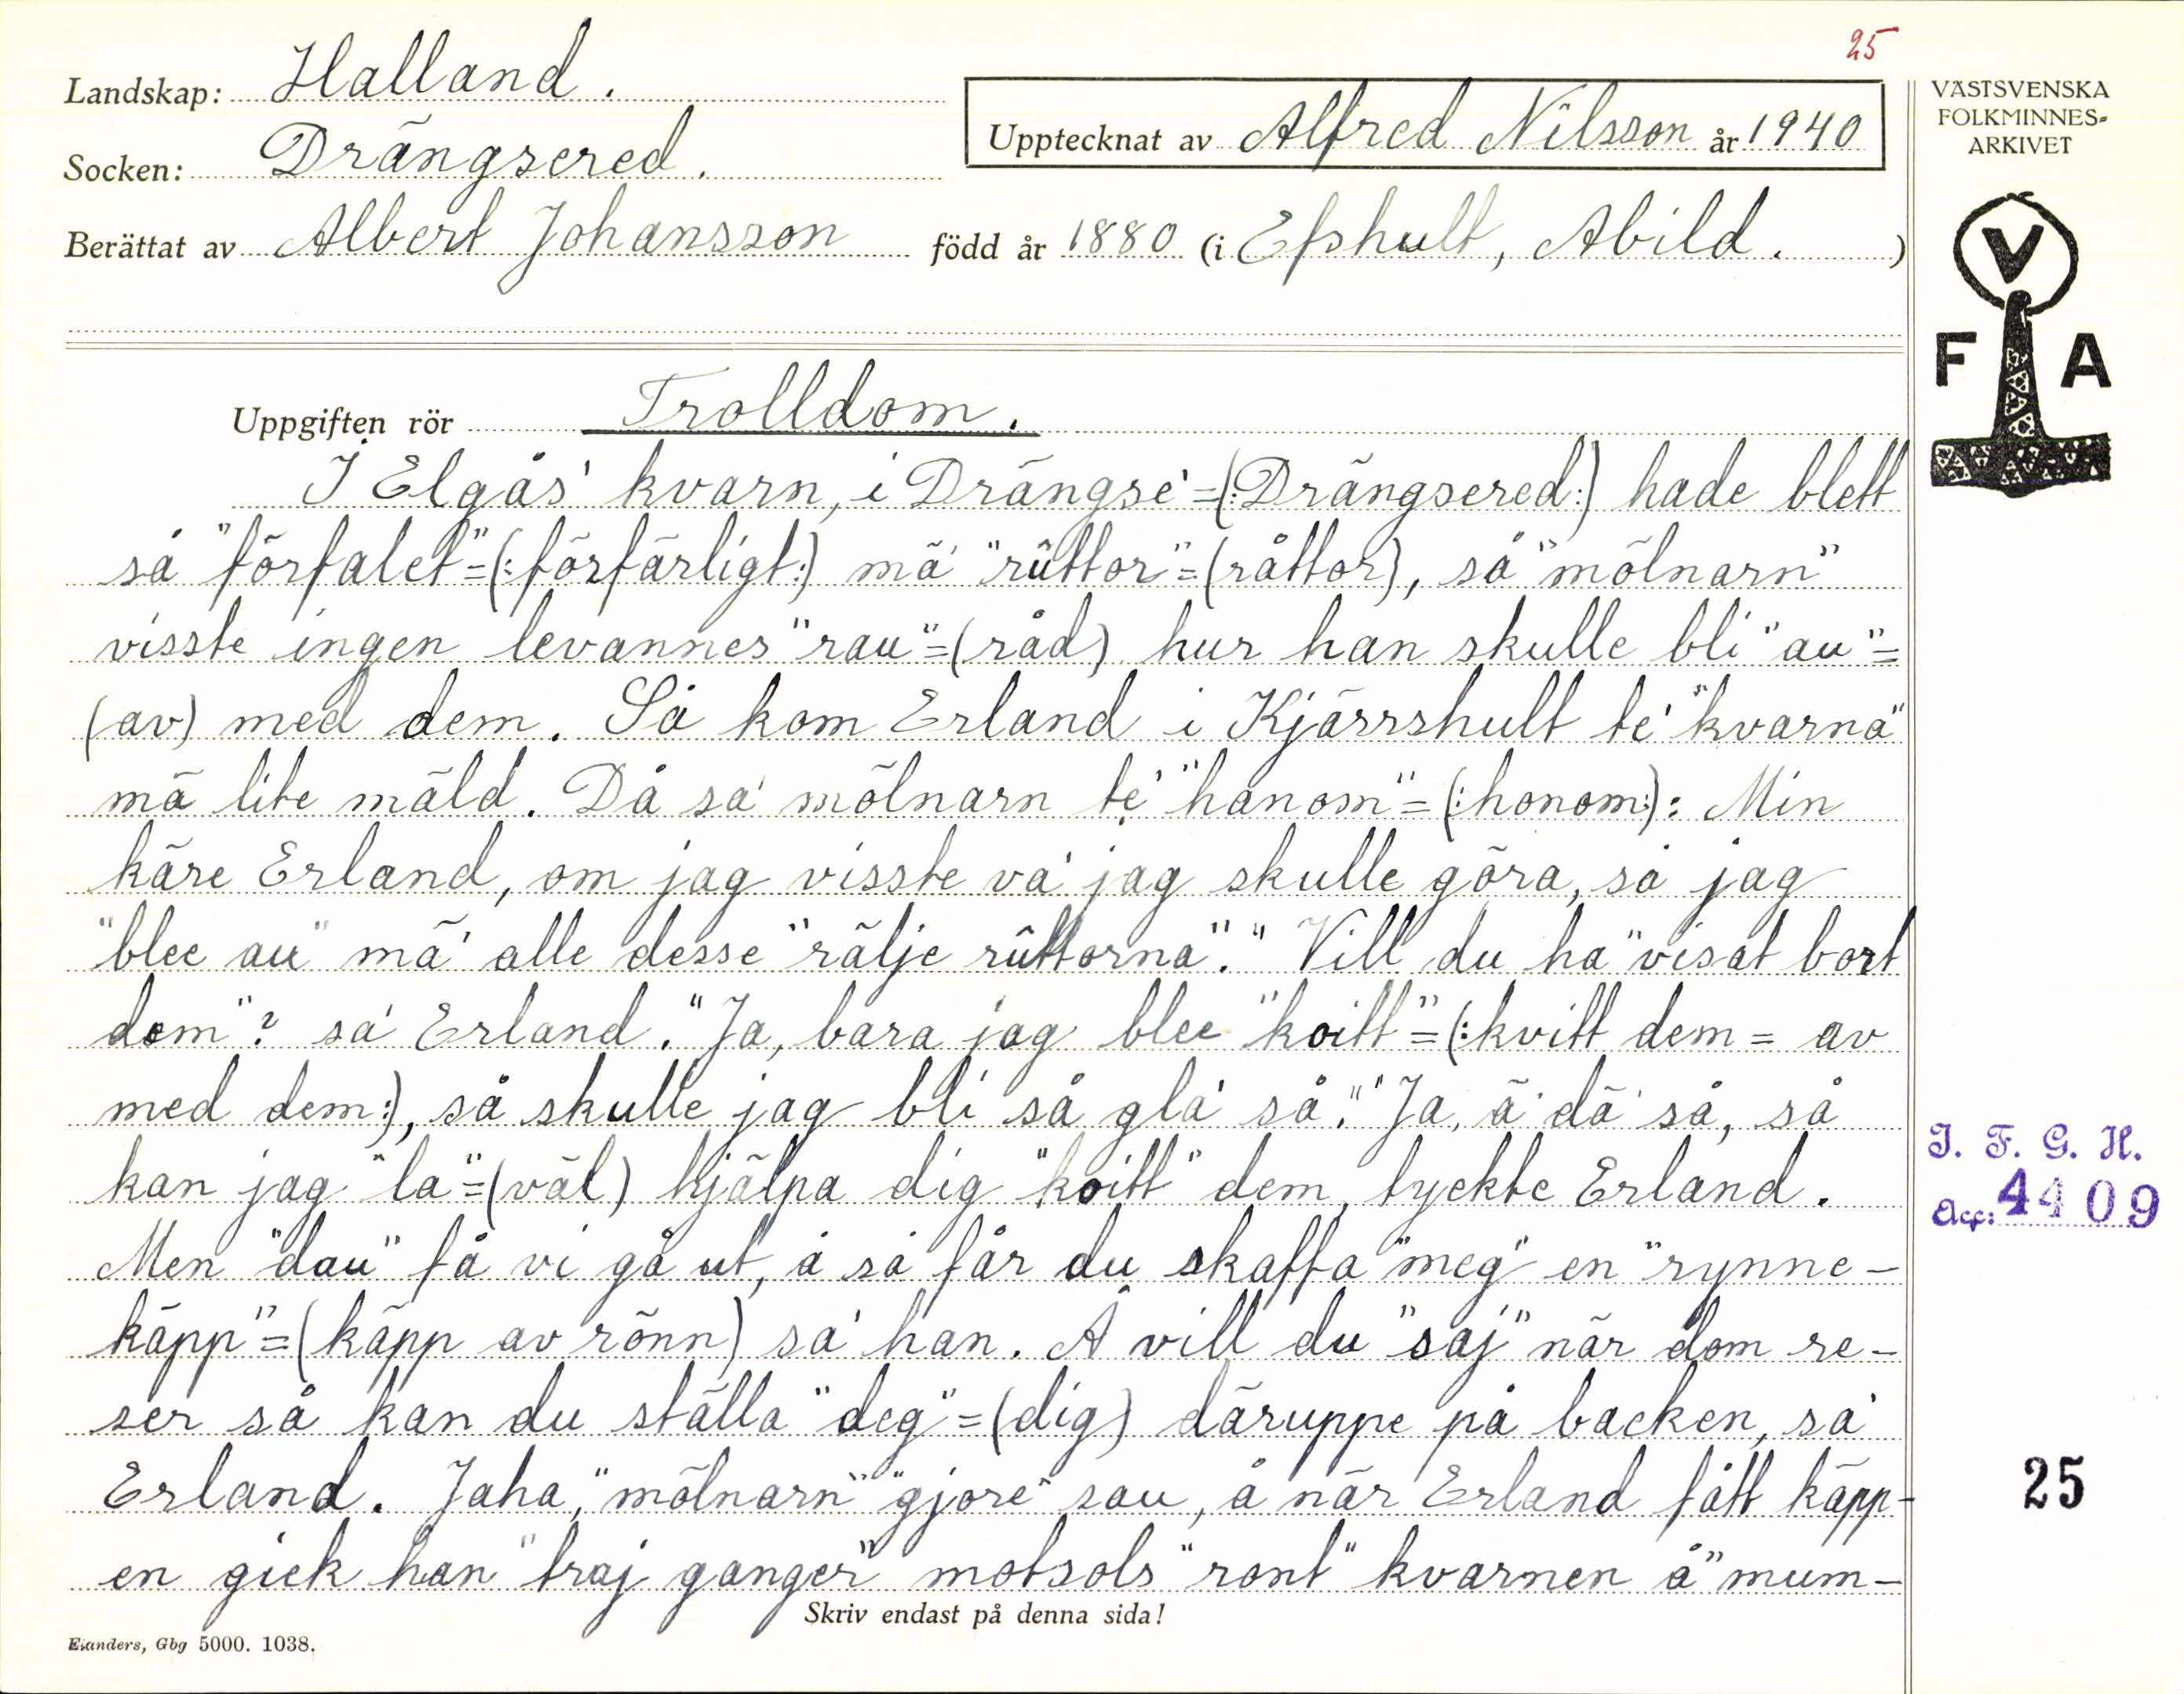 25
Landskap: Halland.
Socken: Drängsered.
Upptecknat av Alfred Nilsson år 1940
Berättat av Albert Johansson född år 1880 (i Efshult, Abild.)
VÄSTSVENSKA
FOLKMINNES-
ARKIVET
V
F A
Uppgiften rör Trolldom.
I Elgås' kvarn, i Drängse' =(:Drängsered:) hade blett
så "förfalet"=(:förfärligt:) mä' "rûttor"=(råttor), så "mölnarn"
visste ingen levannes "rau"=(råd) hur han skulle bli "au"=
(av) med dem. Så kom Erland i Kjärrshult te' "kvarna"
mä lite mäld. Då sa' mölnarn te' "hanom"=(:honom:): Min
käre Erland, om jag visste va' jag skulle göra, så jag
"blee au" mä' alle desse "rälje rûttorna"." Vill du ha "visat bort
dom"? sa' Erland. "Ja, bara jag blee "koitt"=(:kvitt dem = av
med dem:), så skulle jag bli så gla' så." "Ja, ä' dä' så, så
kan jag "la"=(väl) hjälpa dig "koitt" dem, tyckte Erland.
Men "dau" få vi gå ut, å så får du skaffa "meg" en "rynne-
käpp"=(käpp av rönn) sa' han. Å vill du "saj" när dom re-
ser så kan du ställa "deg"=(dig) däruppe på backen, sa'
Erland. Jaha, "mölnarn" "gjore" sau, å när Erland fått käpp-
en gick han "traj ganger" motsols "ront" kvarnen å "mum-
Skriv endast på denna sida!
Elanders, Gbg 5000. 1038.
I. F. G. H.
Acc: 4409
25